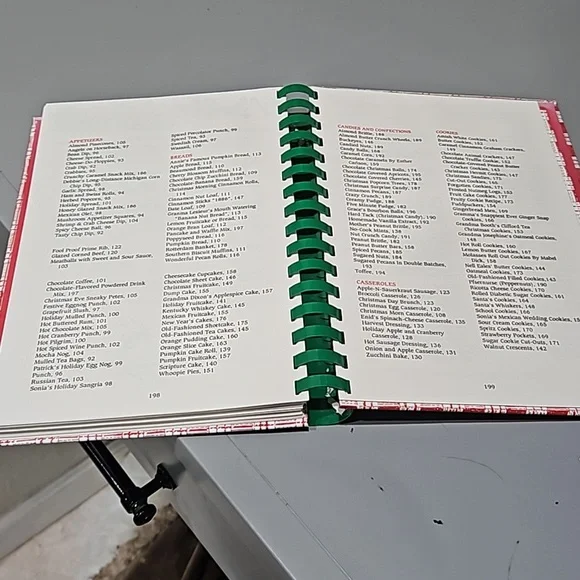 APPETIZERS
Almond Pinecones, 108
Angels on Horseback, 97
Bean Dip, 96
Cheese Spread, 102
Cheese-Do-Flappers, 93
Crab Dip, 92
Crabbies, 95
Crunchy Caramel Snack Mix, 186
Debbie's Long-Distance Michigan Corn
Chip Dip, 95
Garlic Spread, 98
Ham and Swiss Rolls, 94
Herbed Popcorn, 95
Holiday Spread, 101
Honey Glazed Snack Mix, 186
Mexican Olet, 98
Mushroom Appetizer Squares, 94
Shrimp & Crab Cheese Dip, 104
Spicy Cheese Ball, 96
Tasty Chip Dip, 92
Fool Proof Prime Rib, 122
Glazed Corned Beef, 120
Meatballs with Sweet and Sour Sauce,
103
Chocolate Coffee, 101
Chocolate-Flavored Powdered Drink
Mix, 197
Christmas Eve Sneaky Petes, 105
Festive Eggnog Punch, 100
Grapefruit Slush, 97
Holiday Mulled Punch, 100
Hot Buttered Rum, 101
Hot Chocolate Mix, 105
Hot Cranberry Punch, 99
Hot Pilgrim, 100
Hot Spiced Wine Punch, 102
Mocha Nog, 104
Mulled Tea Bags, 92
Patrick's Holiday Egg Nog, 99
Punch, 96
Russian Tea, 103
Sonia's Holiday Sangria 98
Spiced Percolator Punch, 99
Spiced Tea, 93
Swedish Cream, 97
Wassail, 106
BREADS
Annie's Famous Pumpkin Bread, 113
Apple Bread, 115
Beaumont Inn Bread, 110
Cherry Blossom Muffins, 112
Chocolate Chip Zucchini Bread, 109
Chocolate-Almond Braid, 139
Christmas Morning Cinnamon Rolls,
114
Cinnamon Nut Loaf, 111
Cinnamon Sticks "1886", 147
Date Loaf, 109
Gramma Lexieur's Mouth Watering
"Banana Nut Bread", 113
Lemon Fruitcake or Bread, 115
Orange Bran Loaf, 112
Pancake and Waffle Mix, 197
Poppyseed Bread, 116
Pumpkin Bread, 110
Rotterdam Banket, 178
Southern Biscuit Muffins, 111
Wonderful Pecan Rolls, 116
Cheesecake Cupcakes, 158
Chocolate Sheet Cake, 146
Christmas Fruitcake, 149
Dump Cake, 155
Grandma Dixon's Applespice Cake, 157
Holiday Fruitcake, 141
Kentucky Whiskey Cake, 145
Mexican Fruitcake, 155
New Year's Cakes, 176
Old-Fashioned Shortcake, 175
Old-Fashioned Tea Cakes, 145
Orange Pudding Cake, 160
Orange Slice Cake, 163
Pumpkin Cake Roll, 139
Pumpkin Fruitcake, 157
Scripture Cake, 140
Whoopie Pies, 151
198
CANDIES AND CONFECTIONS
Almond Brittle, 184
Almond Butter Crunch Wheels, 189
Buckeyes, 148
Candied Nuts, 189
Candy Balls, 188
Caramel Corn, 192
Chocolate Caramels by Esther
Carlson, 193
Chocolate Christmas Balls, 174
Chocolate Covered Apricots, 191
Chocolate Covered Cherries, 185
Chocolate Popcorn Treats, 178
Christmas Surprise Candy, 187
Cinnamon Pecans, 187
Crazy Crunch, 189
Creamy Fudge, 188
Five Minute Fudge, 182
Grace's Bourbon Balls, 196
Hard Tack (Christmas Candy), 190
Homemade Vanilla Caramels, 190
Mother's Peanut Brittle, 195
No-Cook Mints, 138
Nut Crunch Candy, 191
Peanut Brittle, 182
Peanut Butter Bars, 158
Spiced Pecans, 186
Sugared Nuts, 184
Sugared Pecans in Double Batches,
193
Toffee, 194
CASSEROLES
Apple-N-Sauerkraut Sausage, 123
Broccoli Casserole, 126
Christmas Day Brunch, 123
Christmas Egg Casserole, 120
Christmas Morn Casserole, 108
Enid's Spinach-Cheese Casserole, 135
Harvest Dressing, 133
Holiday Apple and Cranberry
Casserole, 128
Hot Sausage Dressing, 136
Onion and Apple Casserole, 131
Zucchini Bake, 130
COOKIES
Amish White Cookies, 161
Butter Cookies, 152
Caramel Graham Crackers,
Chocolate Crinkles, 147
Chocolate Truffle Cookies, 147
Chocolate Covered Peanut Butter
Cracker Cookies,
Christmas Cookies, 143
Christmas Hermit Cookies,
Christmas Truffles,
Cut-Out Cookies,
Forgotten Cookies, 171
Frosted Nutmeg Logs, 152
Fruit Cake Cookies, 177
Frosty Cookie Recipe, 173
Fuddpuckers, 154
Gingerbread Men, 169
Gramma's Snappiest Ever Ginger Snap
Cookies, 166
Grandma Booth's Clifford Tea
Christmas Cookies, 153
Grandma Josephine's Oatmeal Cookies,
148
Hot Roll Cookies, 160
Lemon Butter Cookies, 167
Molasses Roll Out Cookies By Mabel
Dick, 158
Nell Eales' Butter Cookies, 144
Oatmeal Cookies, 173
Old-Fashioned Filled Cookies, 143
Pfeernusse (Peppernuts), 190
Ricotta Cheese Cookies, 150
Rolled Diabetic Sugar Cookies, 161
Santa's Cookies, 164
Santa's Whiskers, 148
School Cookies, 166
Sonia's Mexican Wedding Cookies, 15
Sour Cream Cookies, 165
Spritz Cookies, 170
Strawberry Pockets, 169
Sugar Cookie Cut-Outs, 171
Walnut Crescents, 142
199